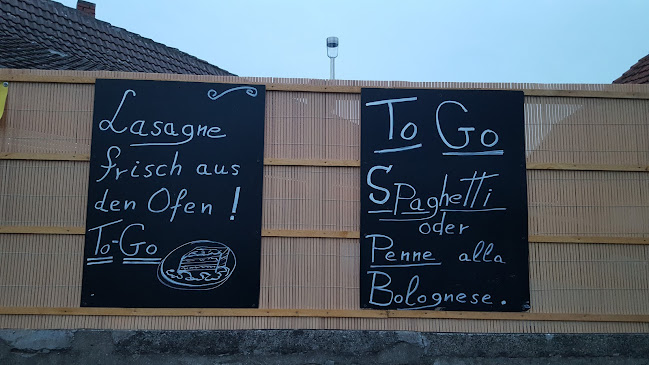 Lasagne
frisch aus
den Ofen!
To-Go
To Go
Spaghetti
oder
Penne alla
Bolognese.